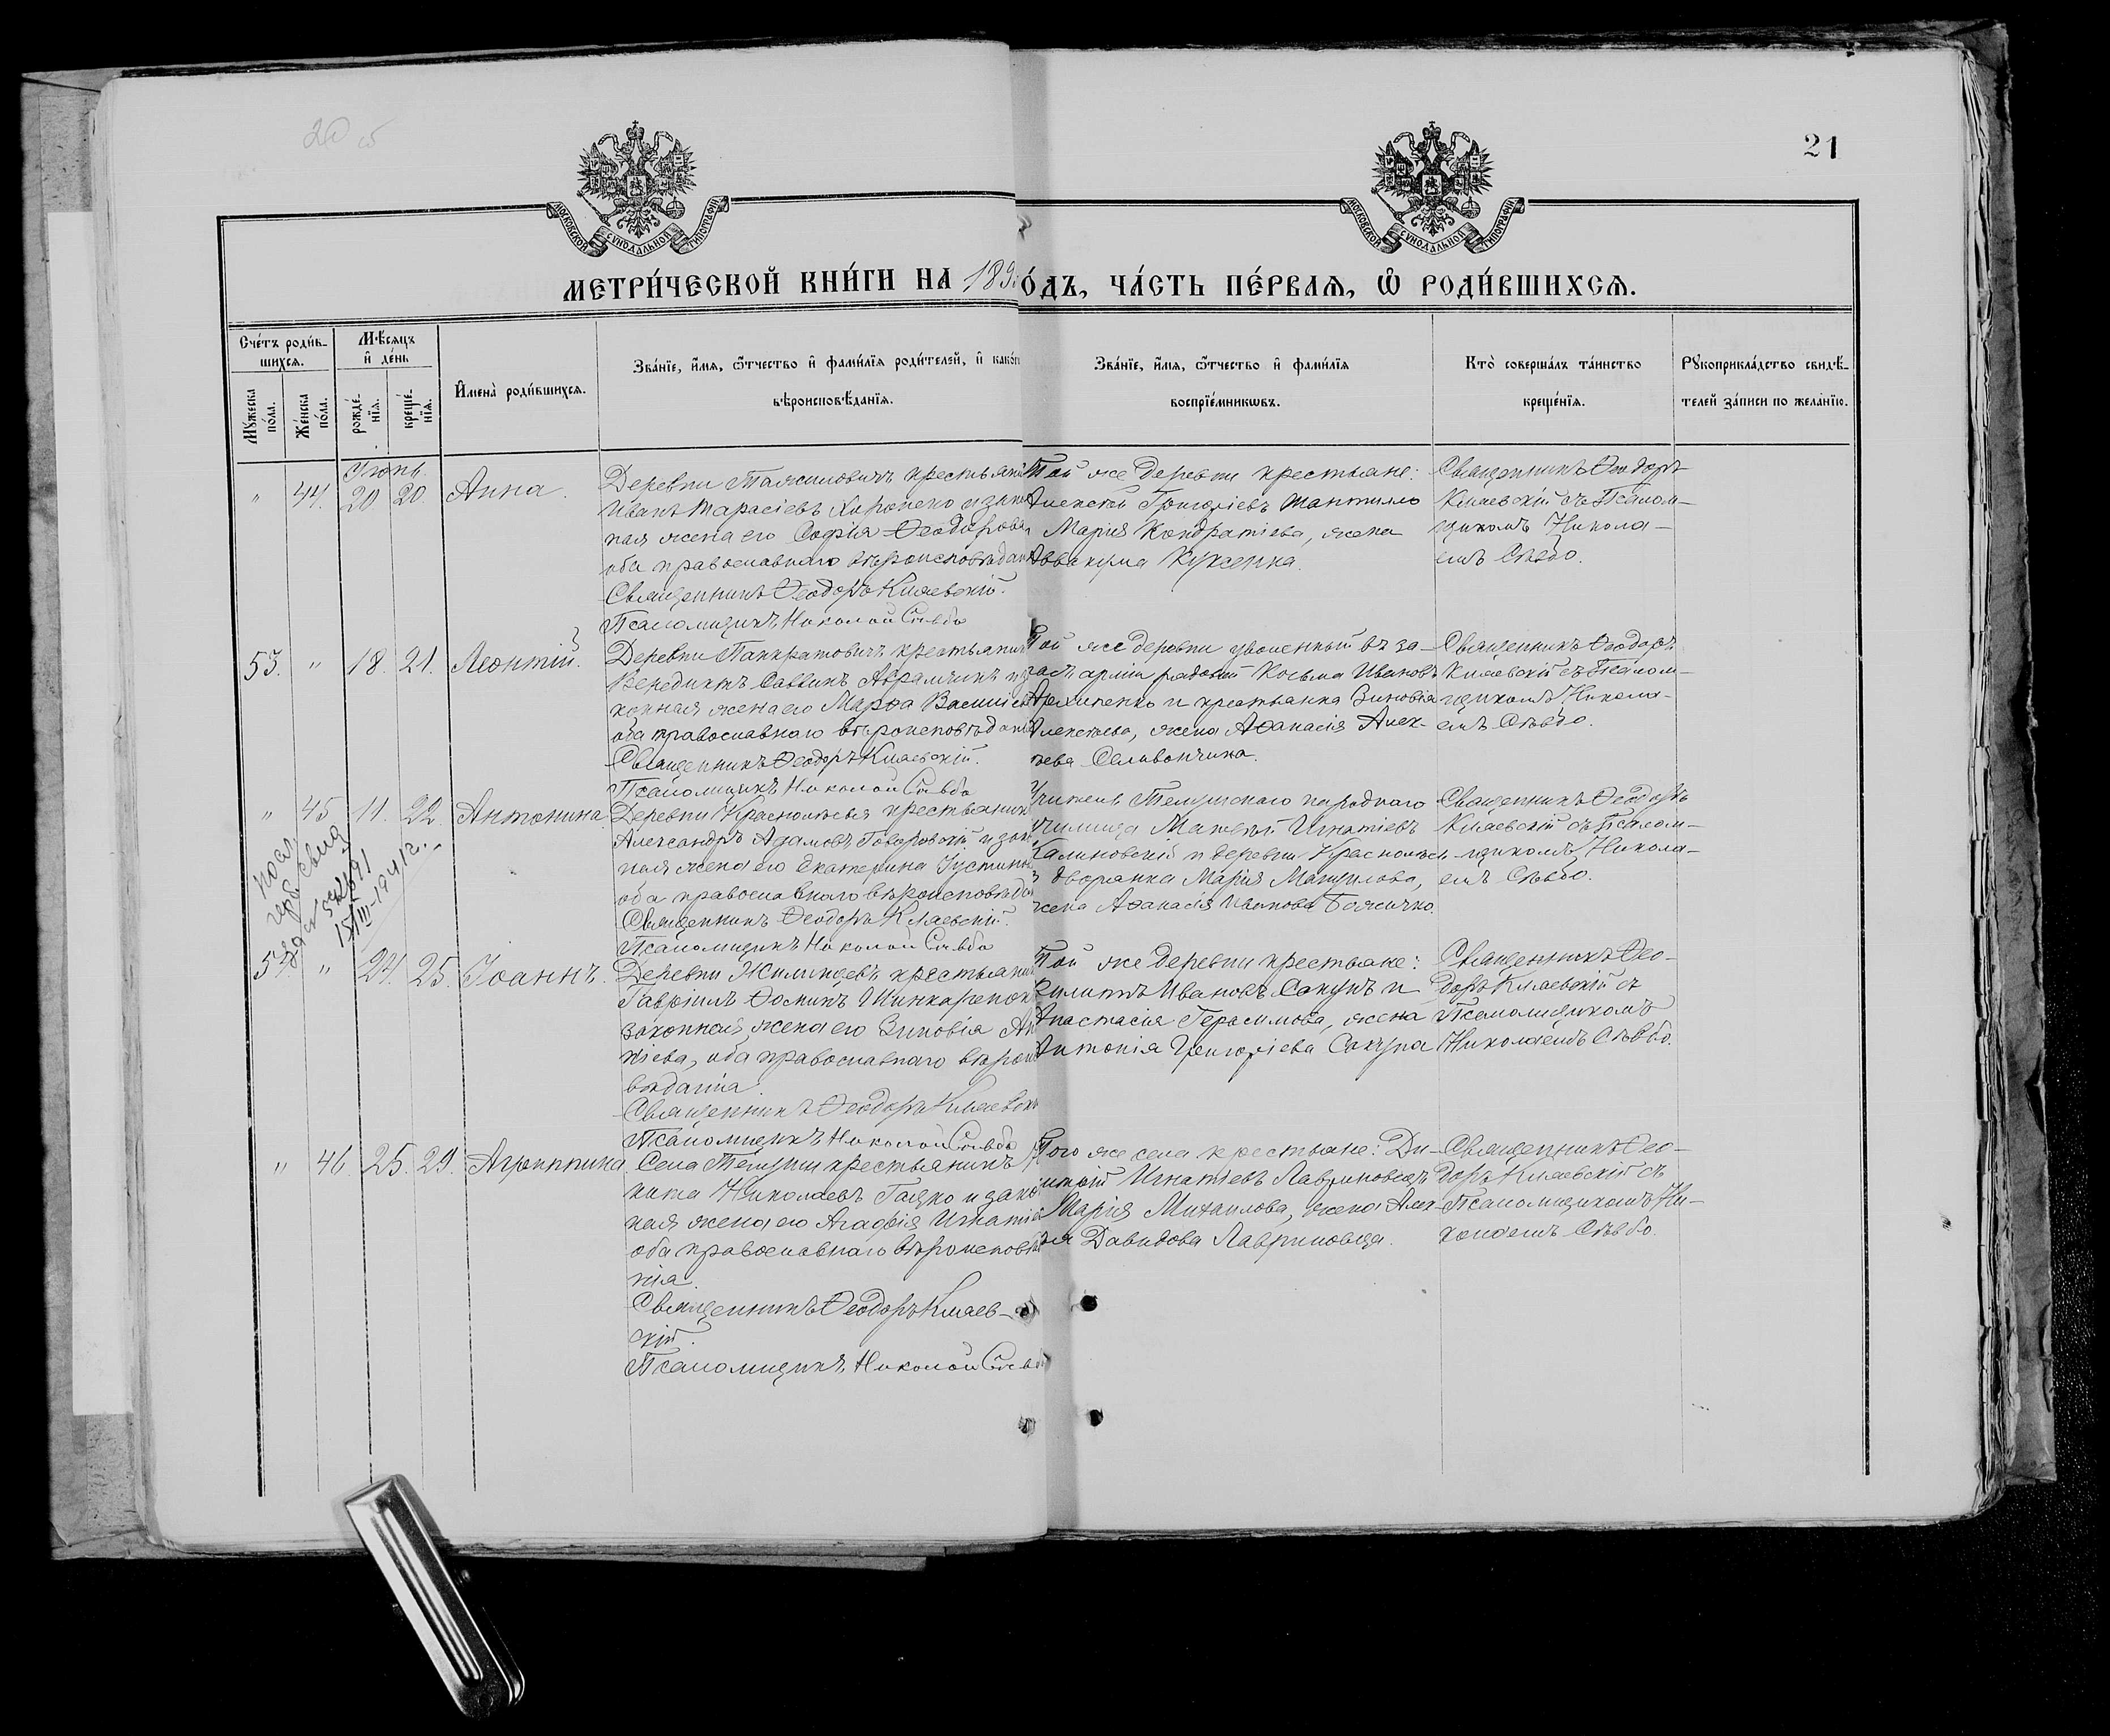 20 об
21
МОСКОВСКОЙ СѴНОДАЛЬНОЙ ТИПОГРАФІИ
МОСКОВСКОЙ СѴНОДАЛЬНОЙ ТИПОГРАФІИ
МЕТРИ́ЧЕСКОЙ КНИ́ГИ НА 189
О́ДЪ, ЧА́СТЬ ПЕ́РВАѦ, Ѡ҆ РОДИ́ВШИХСѦ.
Сче́тъ роди́в-
шихсѧ.
Мꙋ́жеска
по́ла.
Же́нска
по́ла.
Мѣ́сѧцъ
и҆ де́нь
рожде́-
нїѧ.
креще́-
нїѧ.
И҆мена̀ роди́вшихсѧ.
Зва́нїе, и҆́мѧ, ѻ҆́тчество и҆ фами́лїѧ роди́телей, и҆ како́г
вѣроисповѣ́данїѧ.
Зва́нїе, и҆́мѧ, ѻ҆́тчество и҆ фами́лїѧ
воспрїе́мникѡвъ.
Кто̀ соверша́лъ та́инство
креще́нїѧ.
Рꙋкоприкла́дство свидѣ́-
телей за́писи по жела́нїю.
Іюнь
" 44. 20 20. Анна.
Деревни Тажиловичъ крестьяни
Иванъ Тарасіевъ Хоронеко и закон
ная жена его Софія Ѳеодорова
оба православнаго вѣроисповѣдан
Священникъ Ѳеодоръ Кляевскій.
Псаломщикъ Николай Сльбо
Той же деревни крестьяне:
Алексѣй Григоріевъ
Марія Кондратіева, жена
Аввакума Куксенка.
Священникъ Ѳеодоръ
Кляевскій съ Псалом-
щикомъ Никола-
емъ Сльбо.
53. " 18. 21. Леонтій.
Деревни Панкратовичъ крестьянин
Венедиктъ Саввинъ Абрамчикъ и за
конная жена его Марѳа Василіе
оба православнаго вѣроисповѣдані
Священникъ Ѳеодоръ Кляевскій.
Псаломщикъ Николай Сльбо
Той же деревни уволенный въ за-
пасъ арміи рядовой Косьма Ивановъ
Архипенко и крестьянка Зиновія
Алексѣева, жена Аѳанасія Алек-
сѣева Селивончика.
Священникъ Ѳеодоръ
Кляевскій съ Псалом-
щикомъ Никола-
емъ Сльбо.
" 45 11. 22. Антонина.
Деревни Краснолѣсья крестьянин
Александръ Адамовъ Говоровскій и зак
ная жена его Екатерина Іустинов
оба православнаго вѣроисповѣда
Священникъ Ѳеодоръ Кляевскій.
Псаломщикъ Николай Сльбо
Учитель Телушскаго народнаго
училища Матвѣй Игнатіевъ
Калиновскій и деревни Краснолѣс
дворянка Марія
жена Аѳанасія Иванова Божичко.
Священникъ Ѳеодоръ
Кляевскій съ Псалом-
щикомъ Никола-
емъ Сльбо.
54. " 24. 25. Іоаннъ.
Деревни Жилинцевъ крестьянин
Гавріилъ Ѳоминъ Шинкаренок
законная жена его Зиновія Ан
ніева, оба православнаго вѣроис
вѣданія.
Священникъ Ѳеодоръ Кляевск
Псаломщикъ Николай Сльбо
Той же деревни крестьяне:
Филиппъ Ивановъ Сакунъ и
Анастасія Герасимова, жена
Антонія Григоріева Сакуна
Священникъ Ѳео-
доръ Кляевскій съ
Псаломщикомъ
Николаемъ Сльбо.
" 46. 25. 29. Агриппина
Села Телуши крестьянинъ
кита Николаевъ Гацко и зако
ная жена его Агафія Игнатіе
оба православнаго вѣроисповѣ
нія.
Священникъ Ѳеодоръ Кляев-
скій.
Псаломщикъ Николай Сльбо
Того же села крестьяне: Ди-
митрій Игнатіевъ Лавриновецъ
Марія Михаилова, жена Алек-
сѣя Давидова Лавриновца.
Священникъ Ѳео-
доръ Кляевскій съ
Псаломщикомъ Ни-
колаемъ Сльбо.